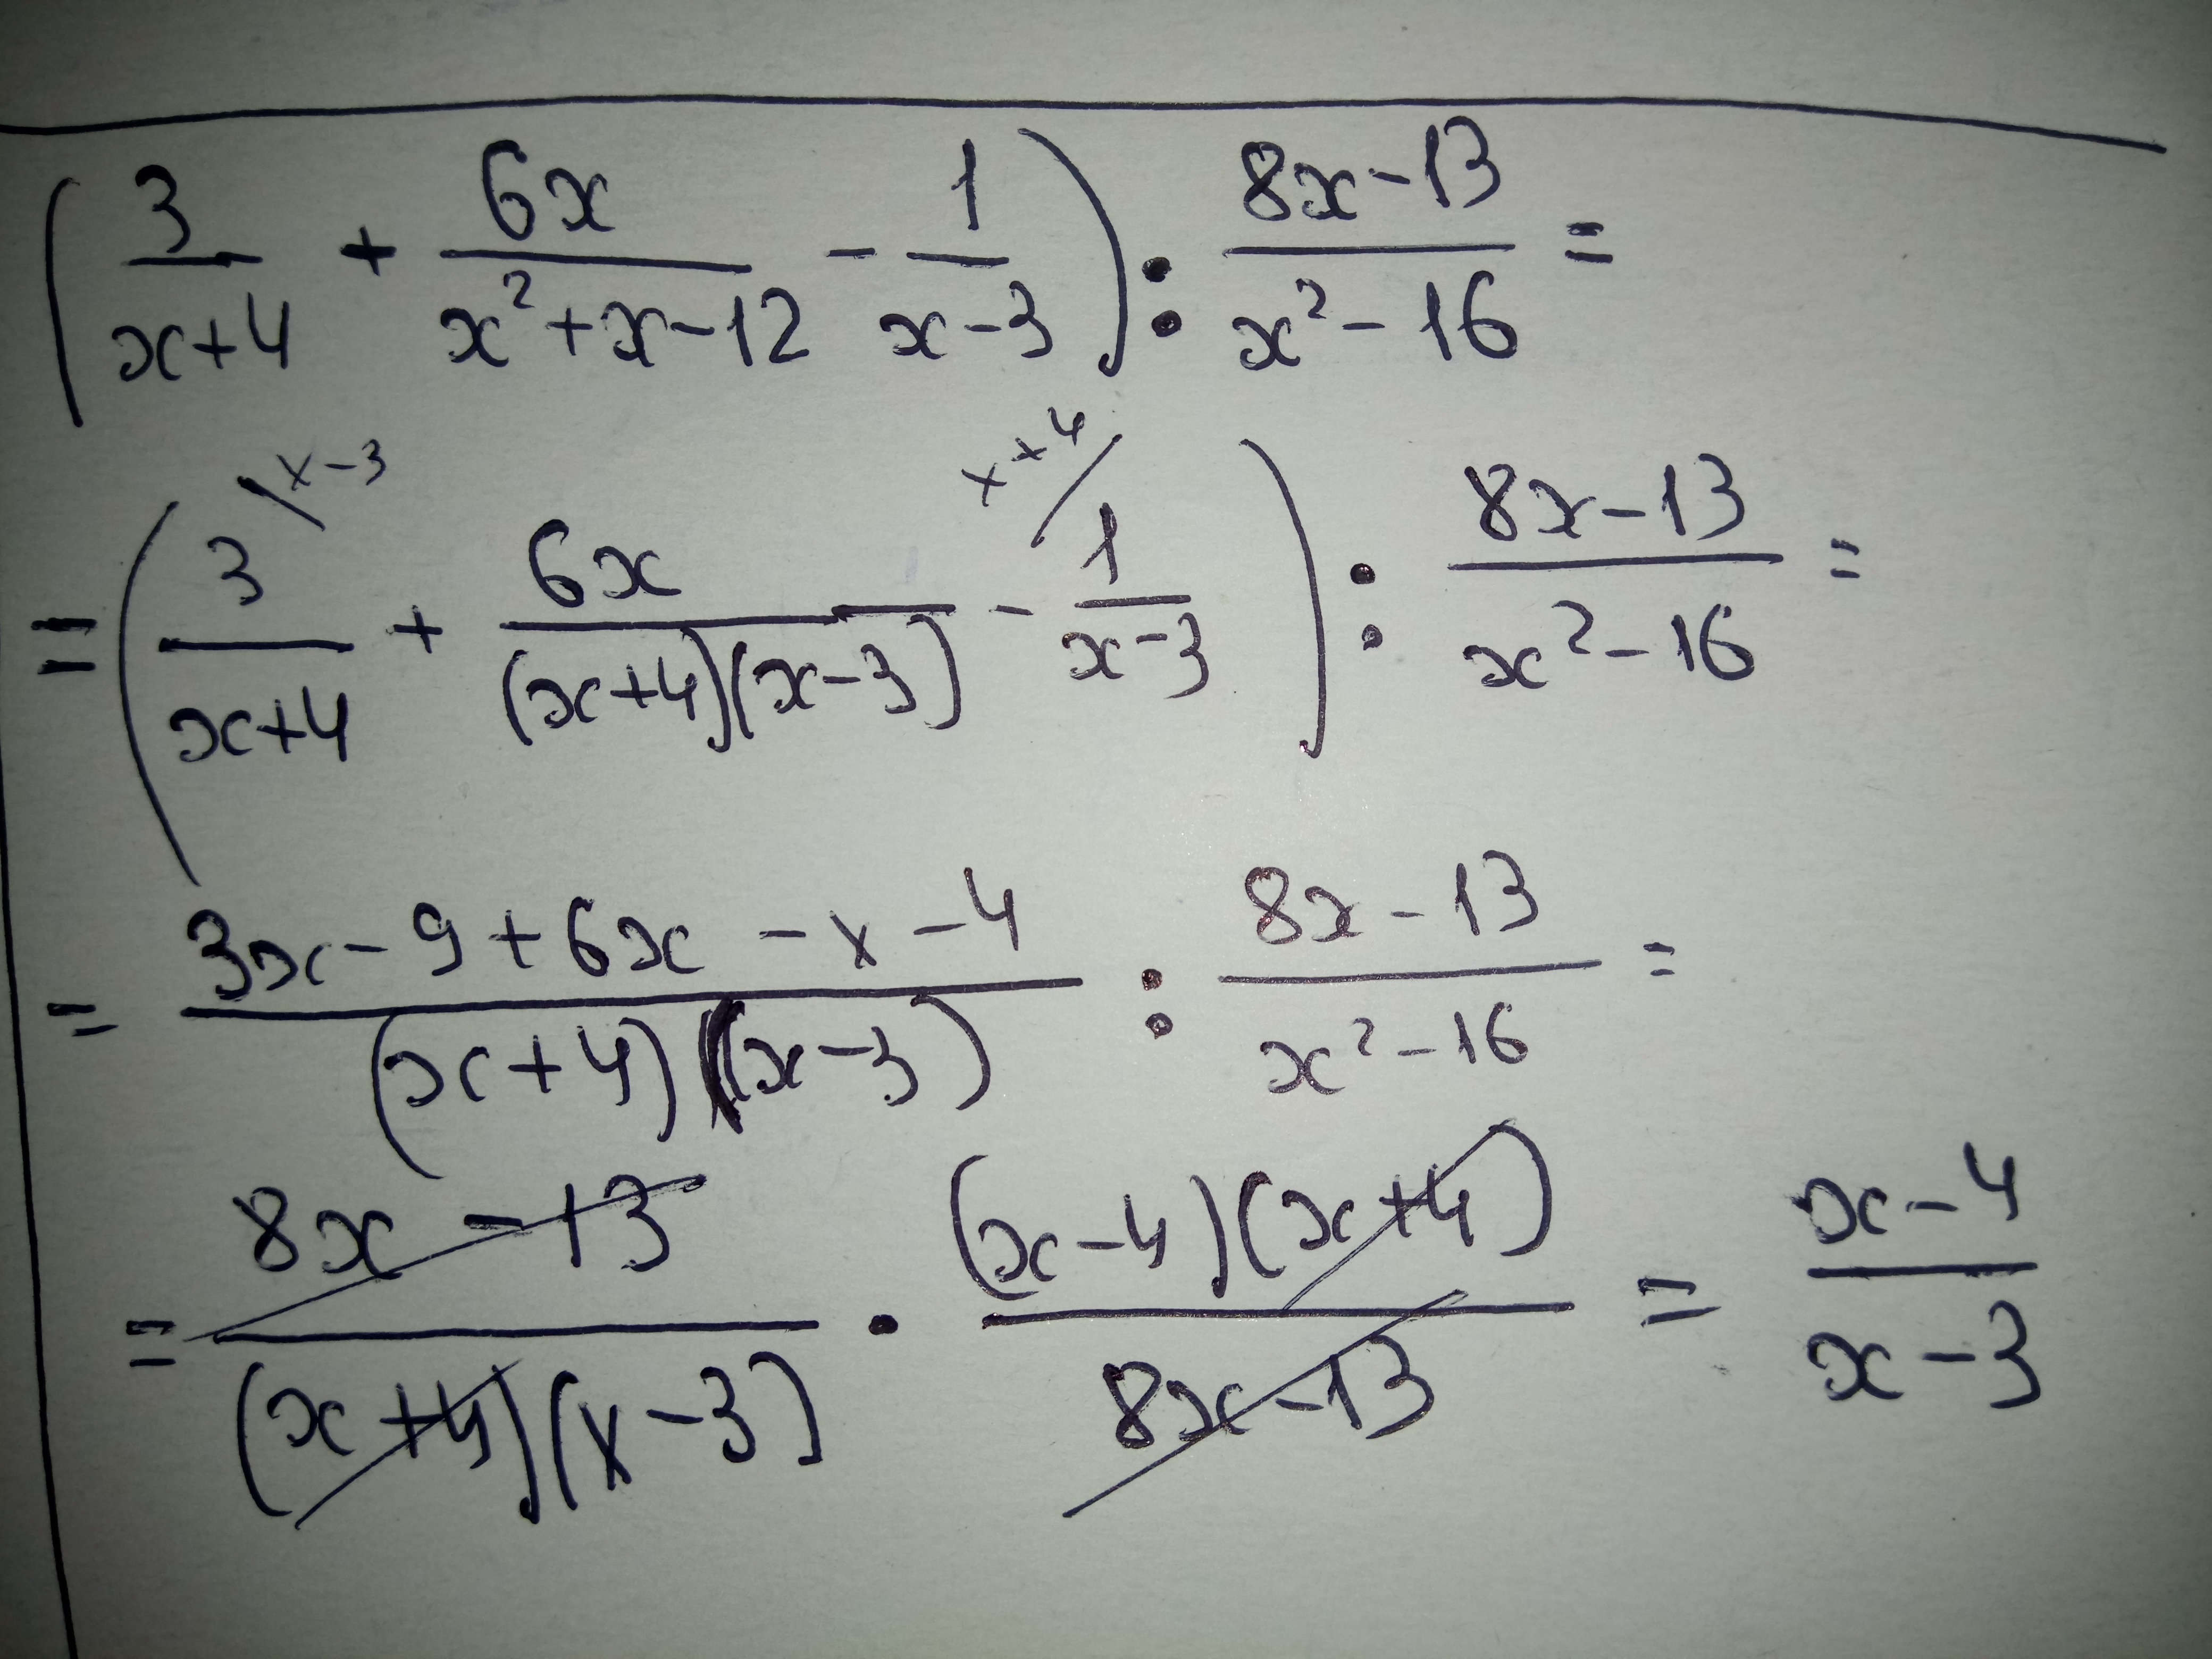 (3/(x+4) + 6x/(x²+x-12) - 1/(x-3)) : (8x-13)/(x²-16) =
= (3/(x+4) ^{/x-3} + 6x/((x+4)(x-3)) - ^{x+4/} 1/(x-3)) : (8x-13)/(x²-16) =
= (3x-9+6x-x-4)/((x+4)(x-3)) : (8x-13)/(x²-16) =
= (8x-13)/((x+4)(x-3)) · ((x-4)(x+4))/(8x-13) = (x-4)/(x-3)